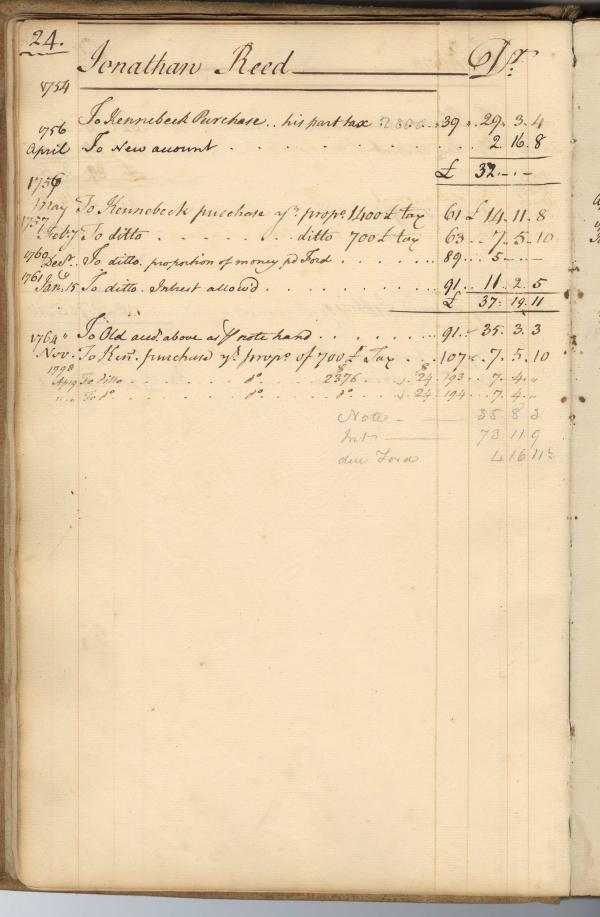 24.
Jonathan Reed Dr.
1754
To Kennebeck Purchase .. his part tax 2800 39 29. 3. 4
1756
April To New acount 2 16. 8
£ 32. -. -
1756
May To Kennebeck purchase yr. propo. 1400 £ tax 61 £ 14. 11. 8
1757
Feby. To ditto ditto 700 £ tax 63 7. 5. 10
1760
Decr. To ditto. proportion of money pd Ford 89 5 - -
1761
Jan. 15 To ditto. Intrest allow'd 91. 11. 2. 5
£ 37. 19. 11
1764 To Old acct. above as pr note hand 91. 35. 3. 3
Nov. To Ken. purchase yr. propo. of 700 £ Tax 107 7. 5. 10
To ditto do. 2376 $ 24 193 7. 4. "
" To do. do. do. $ 24 194 7. 4. "
Note 35 8 3
Int 73. 11. 9
due Ford 4 16 11